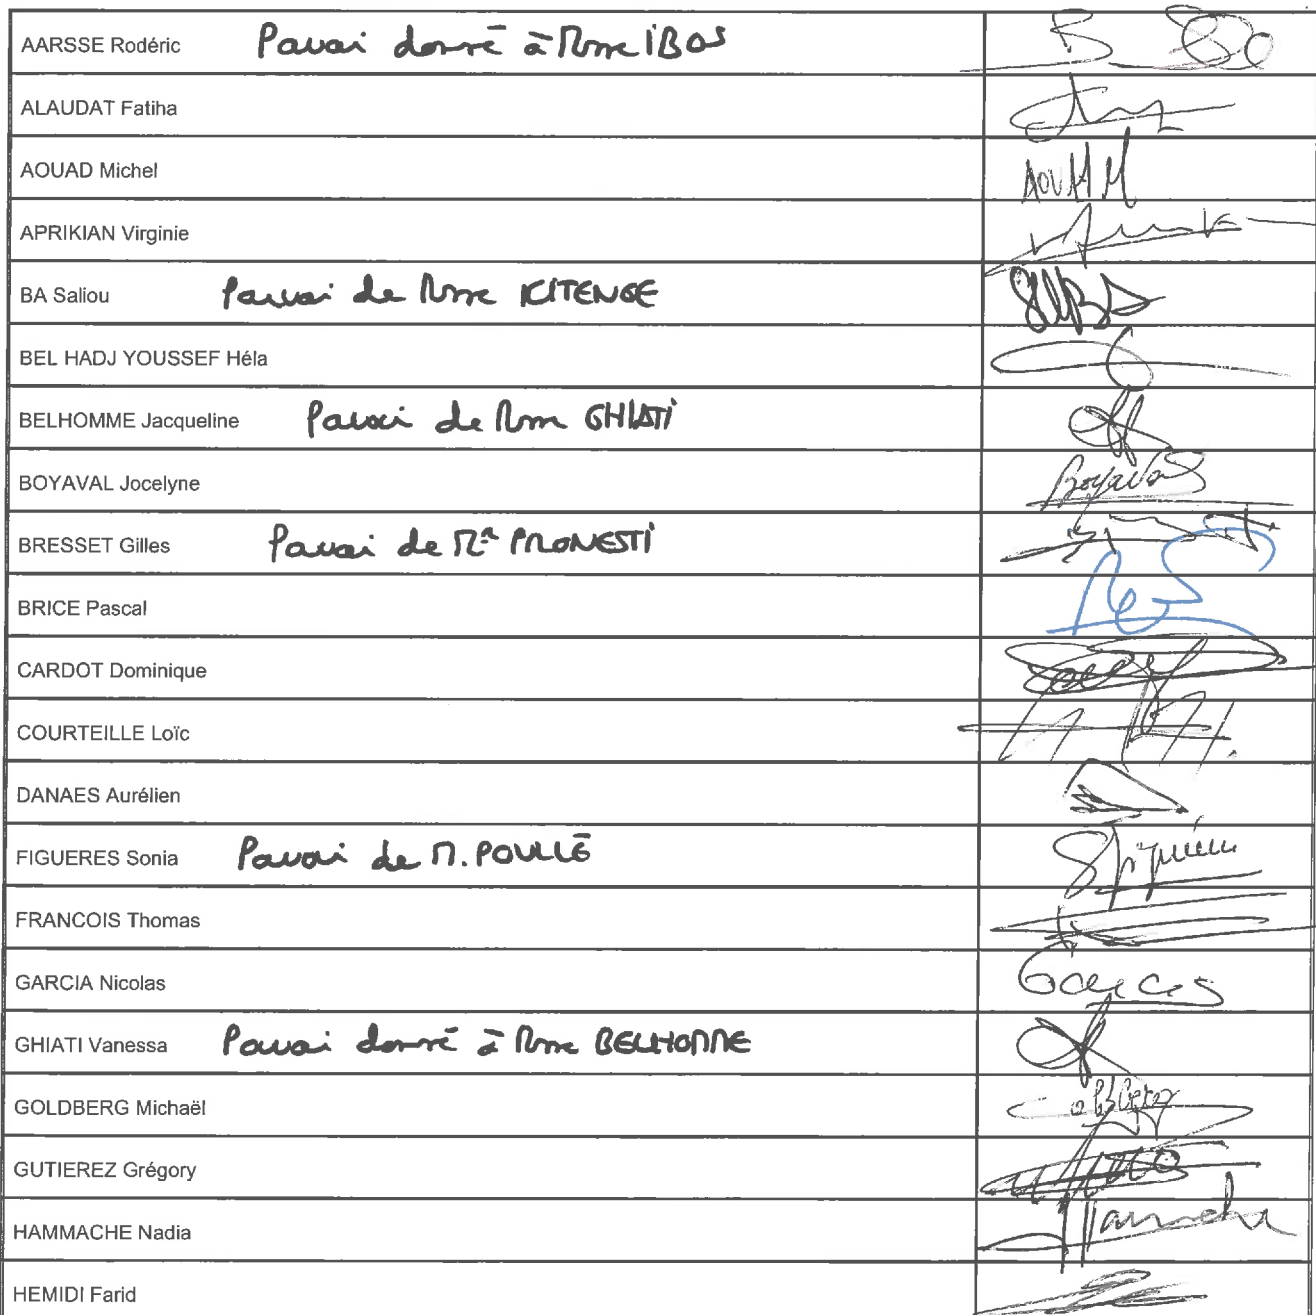 AARSSE Rodéric Pouvoir donné à Mme IBOS
ALAUDAT Fatiha
AOUAD Michel
AOUAD M
APRIKIAN Virginie
BA Saliou Pouvoir de Mme KITENGE
BEL HADJ YOUSSEF Héla
BELHOMME Jacqueline Pouvoir de Mme GHIATI
BOYAVAL Jocelyne Boyaval
BRESSET Gilles Pouvoir de Mr PRONESTI
BRICE Pascal
CARDOT Dominique
COURTEILLE Loïc
DANAES Aurélien
FIGUERES Sonia Pouvoir de M. POULLÉ
FRANCOIS Thomas
GARCIA Nicolas Garcia
GHIATI Vanessa Pouvoir donné à Mme BELHOMME
GOLDBERG Michaël
GUTIEREZ Grégory
HAMMACHE Nadia Hammache
HEMIDI Farid